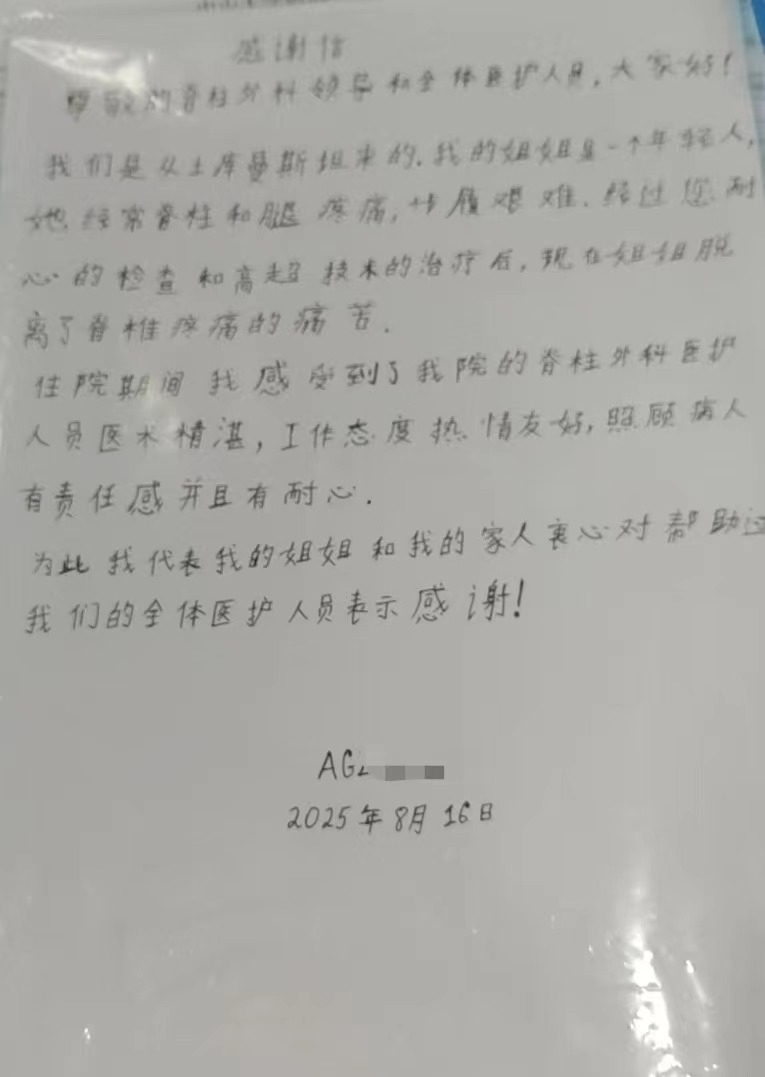 感谢信
尊敬的脊柱外科领导和全体医护人员,大家好!
我们是从土库曼斯坦来的.我的姐姐是一个年轻人,
她经常脊柱和腿疼痛,步履艰难.经过您耐
心的检查和高超技术的治疗后,现在姐姐脱
离了脊椎疼痛的痛苦.
住院期间我感受到了我院的脊柱外科医护
人员医术精湛,工作态度热情友好,照顾病人
有责任感并且有耐心.
为此我代表我的姐姐和我的家人衷心对帮助过
我们的全体医护人员表示感谢!
AG
2025年8月16日